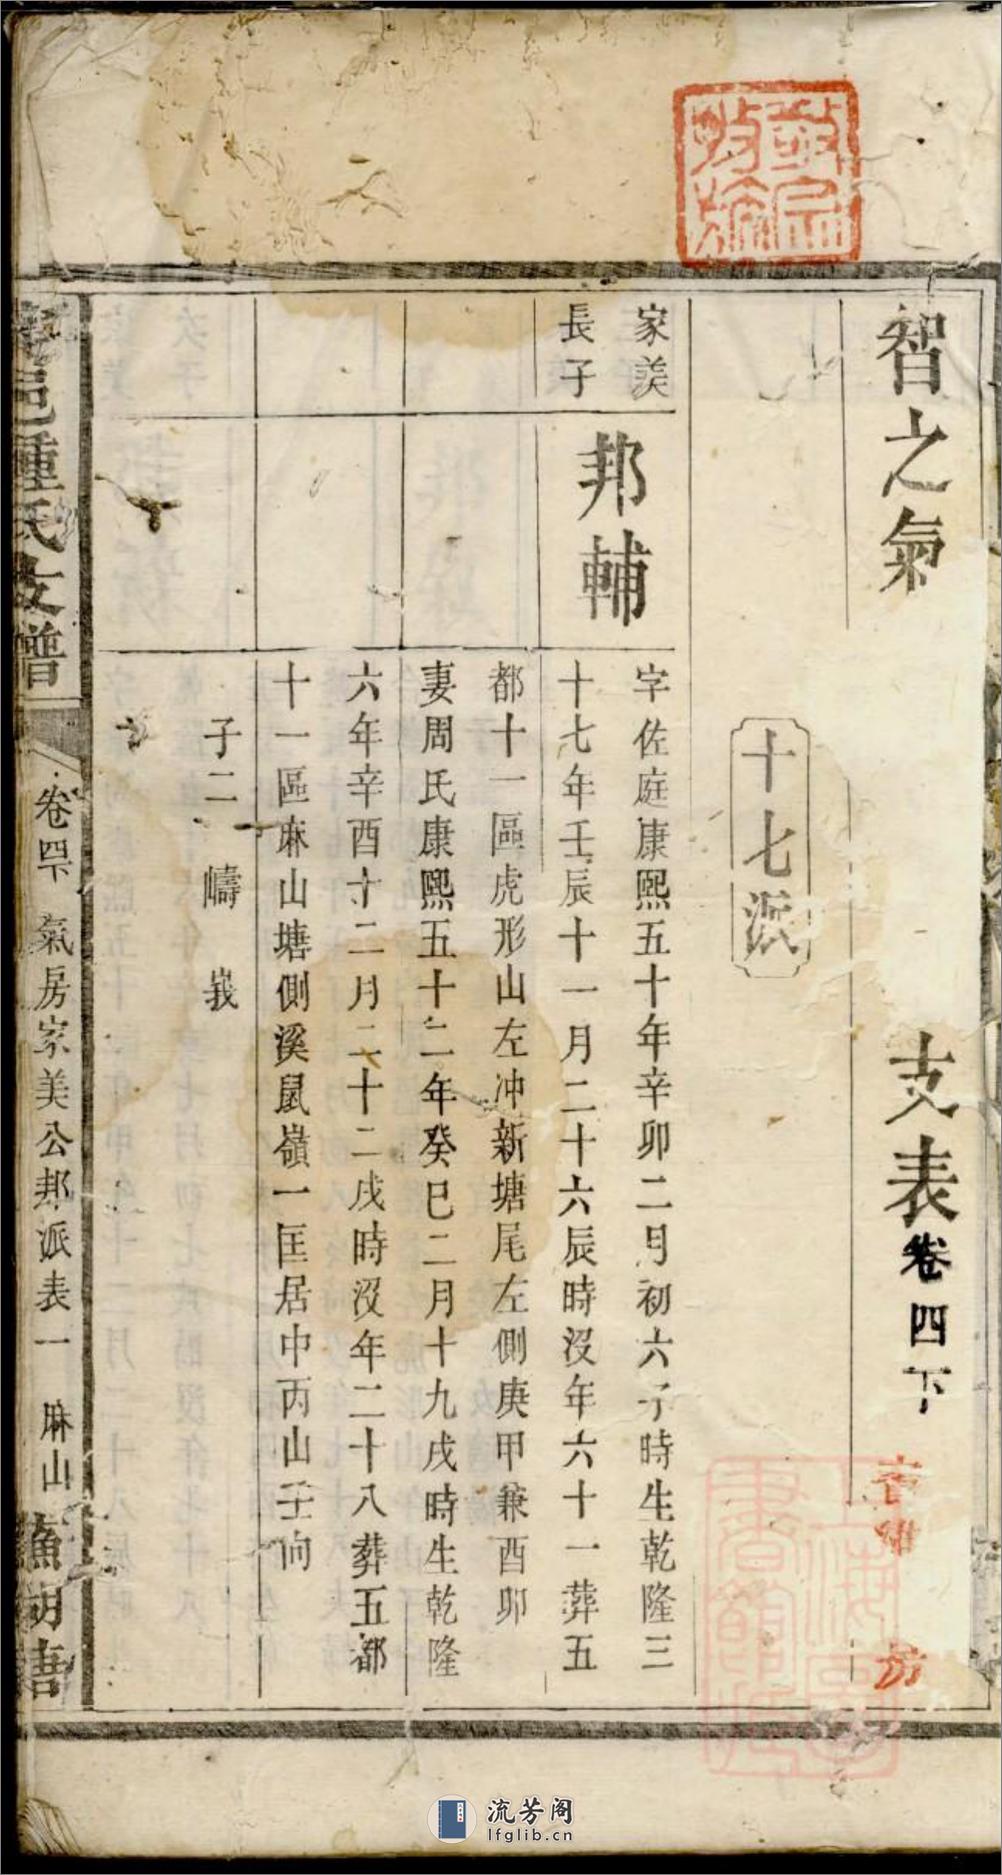 智之氣
支表卷四下
十七派
家美
長子
邦輔
字佐庭康熙五十年辛卯二月初六子時生乾隆三
十七年壬辰十一月二十六辰時沒年六十一葬五
都十一區虎形山左冲新塘尾左側庚甲兼酉卯
妻周氏康熙五十二年癸巳二月十九戌時生乾隆
六年辛酉十二月二十二戌時沒年二十八葬五都
十一區麻山塘側溪鼠嶺一匡居中丙山壬向
子二 嶹 峩
邑鍾氏支譜
卷四下 氣房家美公邦派表一 麻山
流芳阁
lfglib.cn